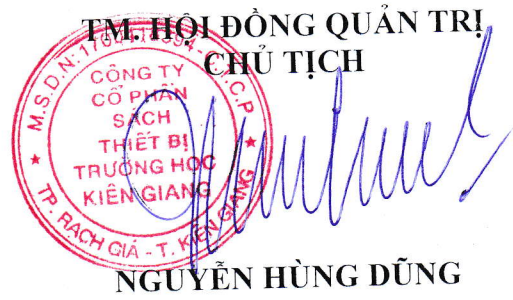 TM. HỘI ĐỒNG QUẢN TRỊ
CHỦ TỊCH
CÔNG TY
CỔ PHẦN
SÁCH
THIẾT BỊ
TRƯỜNG HỌC
KIÊN GIANG
TP. RẠCH GIÁ - T. KIÊN GIANG
NGUYỄN HÙNG DŨNG